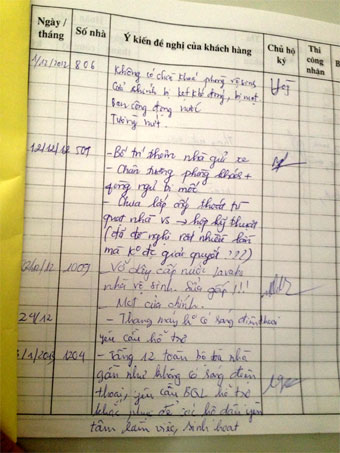 Ngày / tháng
Số nhà
Ý kiến đề nghị của khách hàng
Chủ hộ ký
Thi công nhận
B
1/12/2012 806
Không có chìa khoá phòng vệ sinh
Cửa khánh bị kẹt khó đóng, bị nứt
Ban công đọng nước
Tường nứt.
12/12/12 501
- Bố trí thêm nhà gửi xe
- Chân tường phòng khách +
phòng ngủ bị mốc
- Chưa lắp ống thoát từ
quạt nhà vs → hộp kỹ thuật
(đã đề nghị rất nhiều lần
mà k° để giải quyết ?!?)
12/12 1009
- Vỡ dây cấp nước lavabo
nhà vệ sinh. Sửa gấp!!!
- Mới của chính.
29/12
- Thang máy k° có sóng điện thoại
yêu cầu hỗ trợ
/1/2013 1204
- Tầng 12 toàn bộ toà nhà
gần như không có sóng điện
thoại, yêu cầu BQL hỗ trợ
khắc phục để các hộ dân yên
tâm làm việc, sinh hoạt